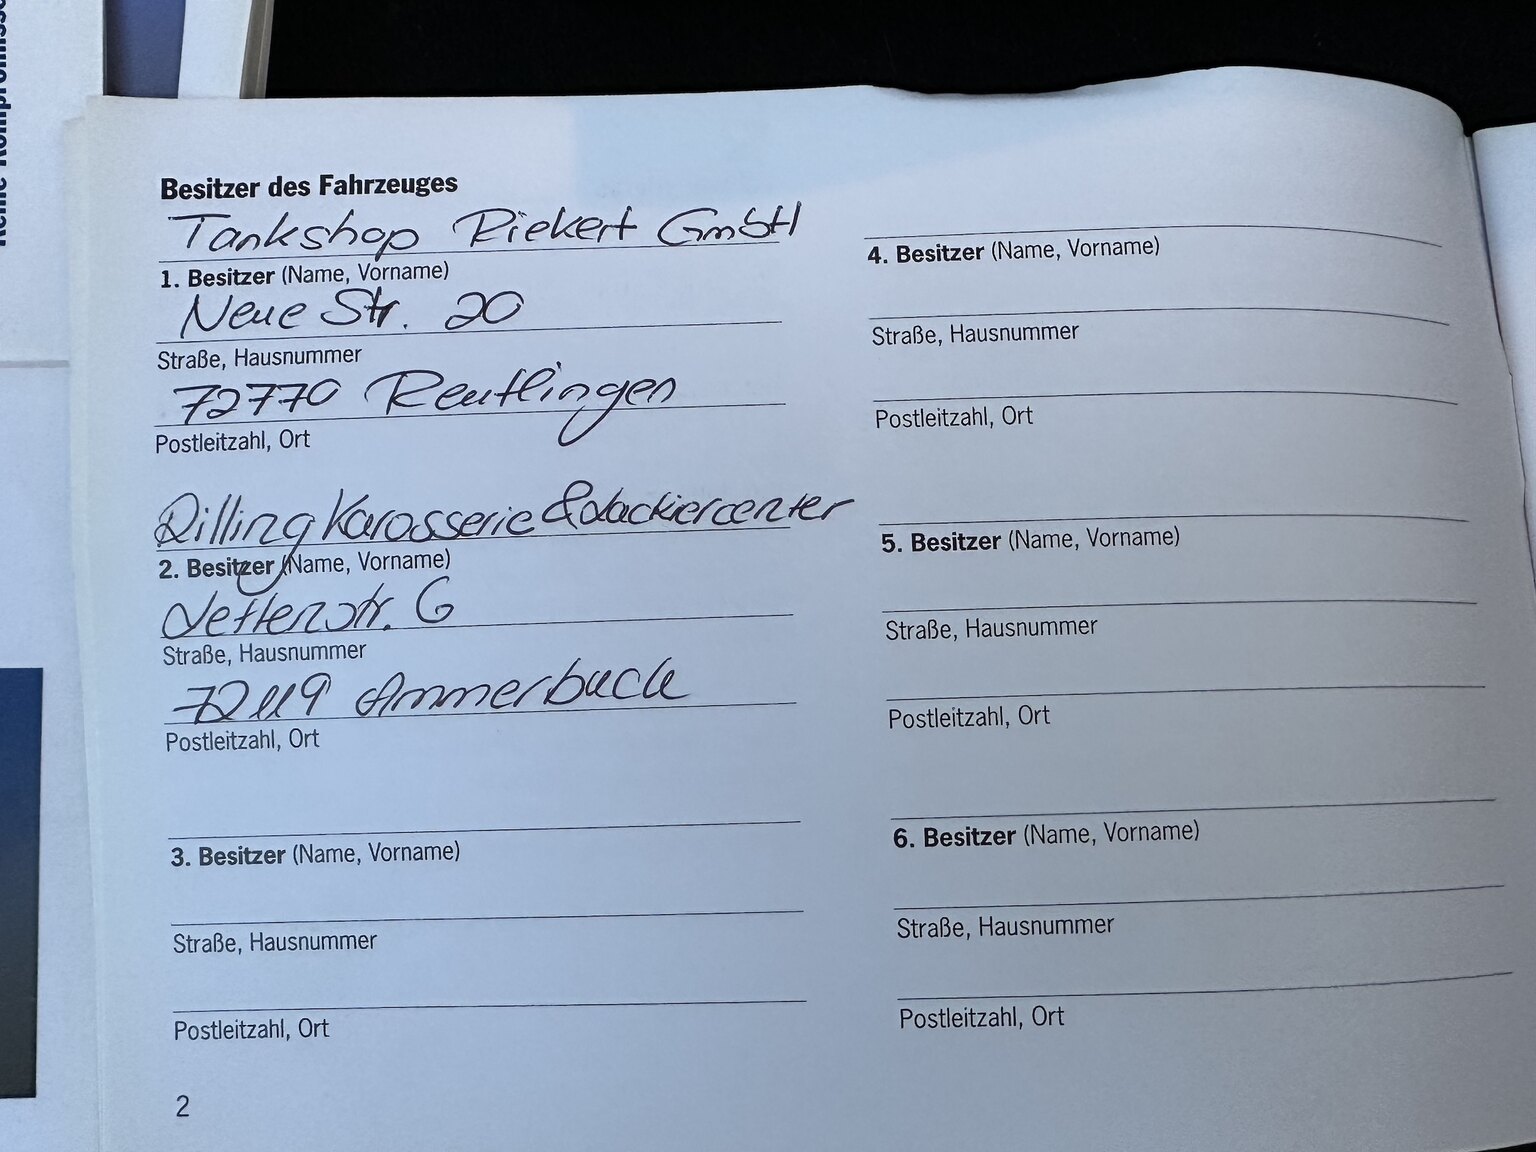 Besitzer des Fahrzeuges
Tankshop Riekert GmbH
1. Besitzer (Name, Vorname)
Neue Str. 20
Straße, Hausnummer
72770 Reutlingen
Postleitzahl, Ort
Rilling Karosserie & Lackiercenter
2. Besitzer (Name, Vorname)
6
Straße, Hausnummer
72119 Ammerbuch
Postleitzahl, Ort
3. Besitzer (Name, Vorname)
Straße, Hausnummer
Postleitzahl, Ort
2
4. Besitzer (Name, Vorname)
Straße, Hausnummer
Postleitzahl, Ort
5. Besitzer (Name, Vorname)
Straße, Hausnummer
Postleitzahl, Ort
6. Besitzer (Name, Vorname)
Straße, Hausnummer
Postleitzahl, Ort